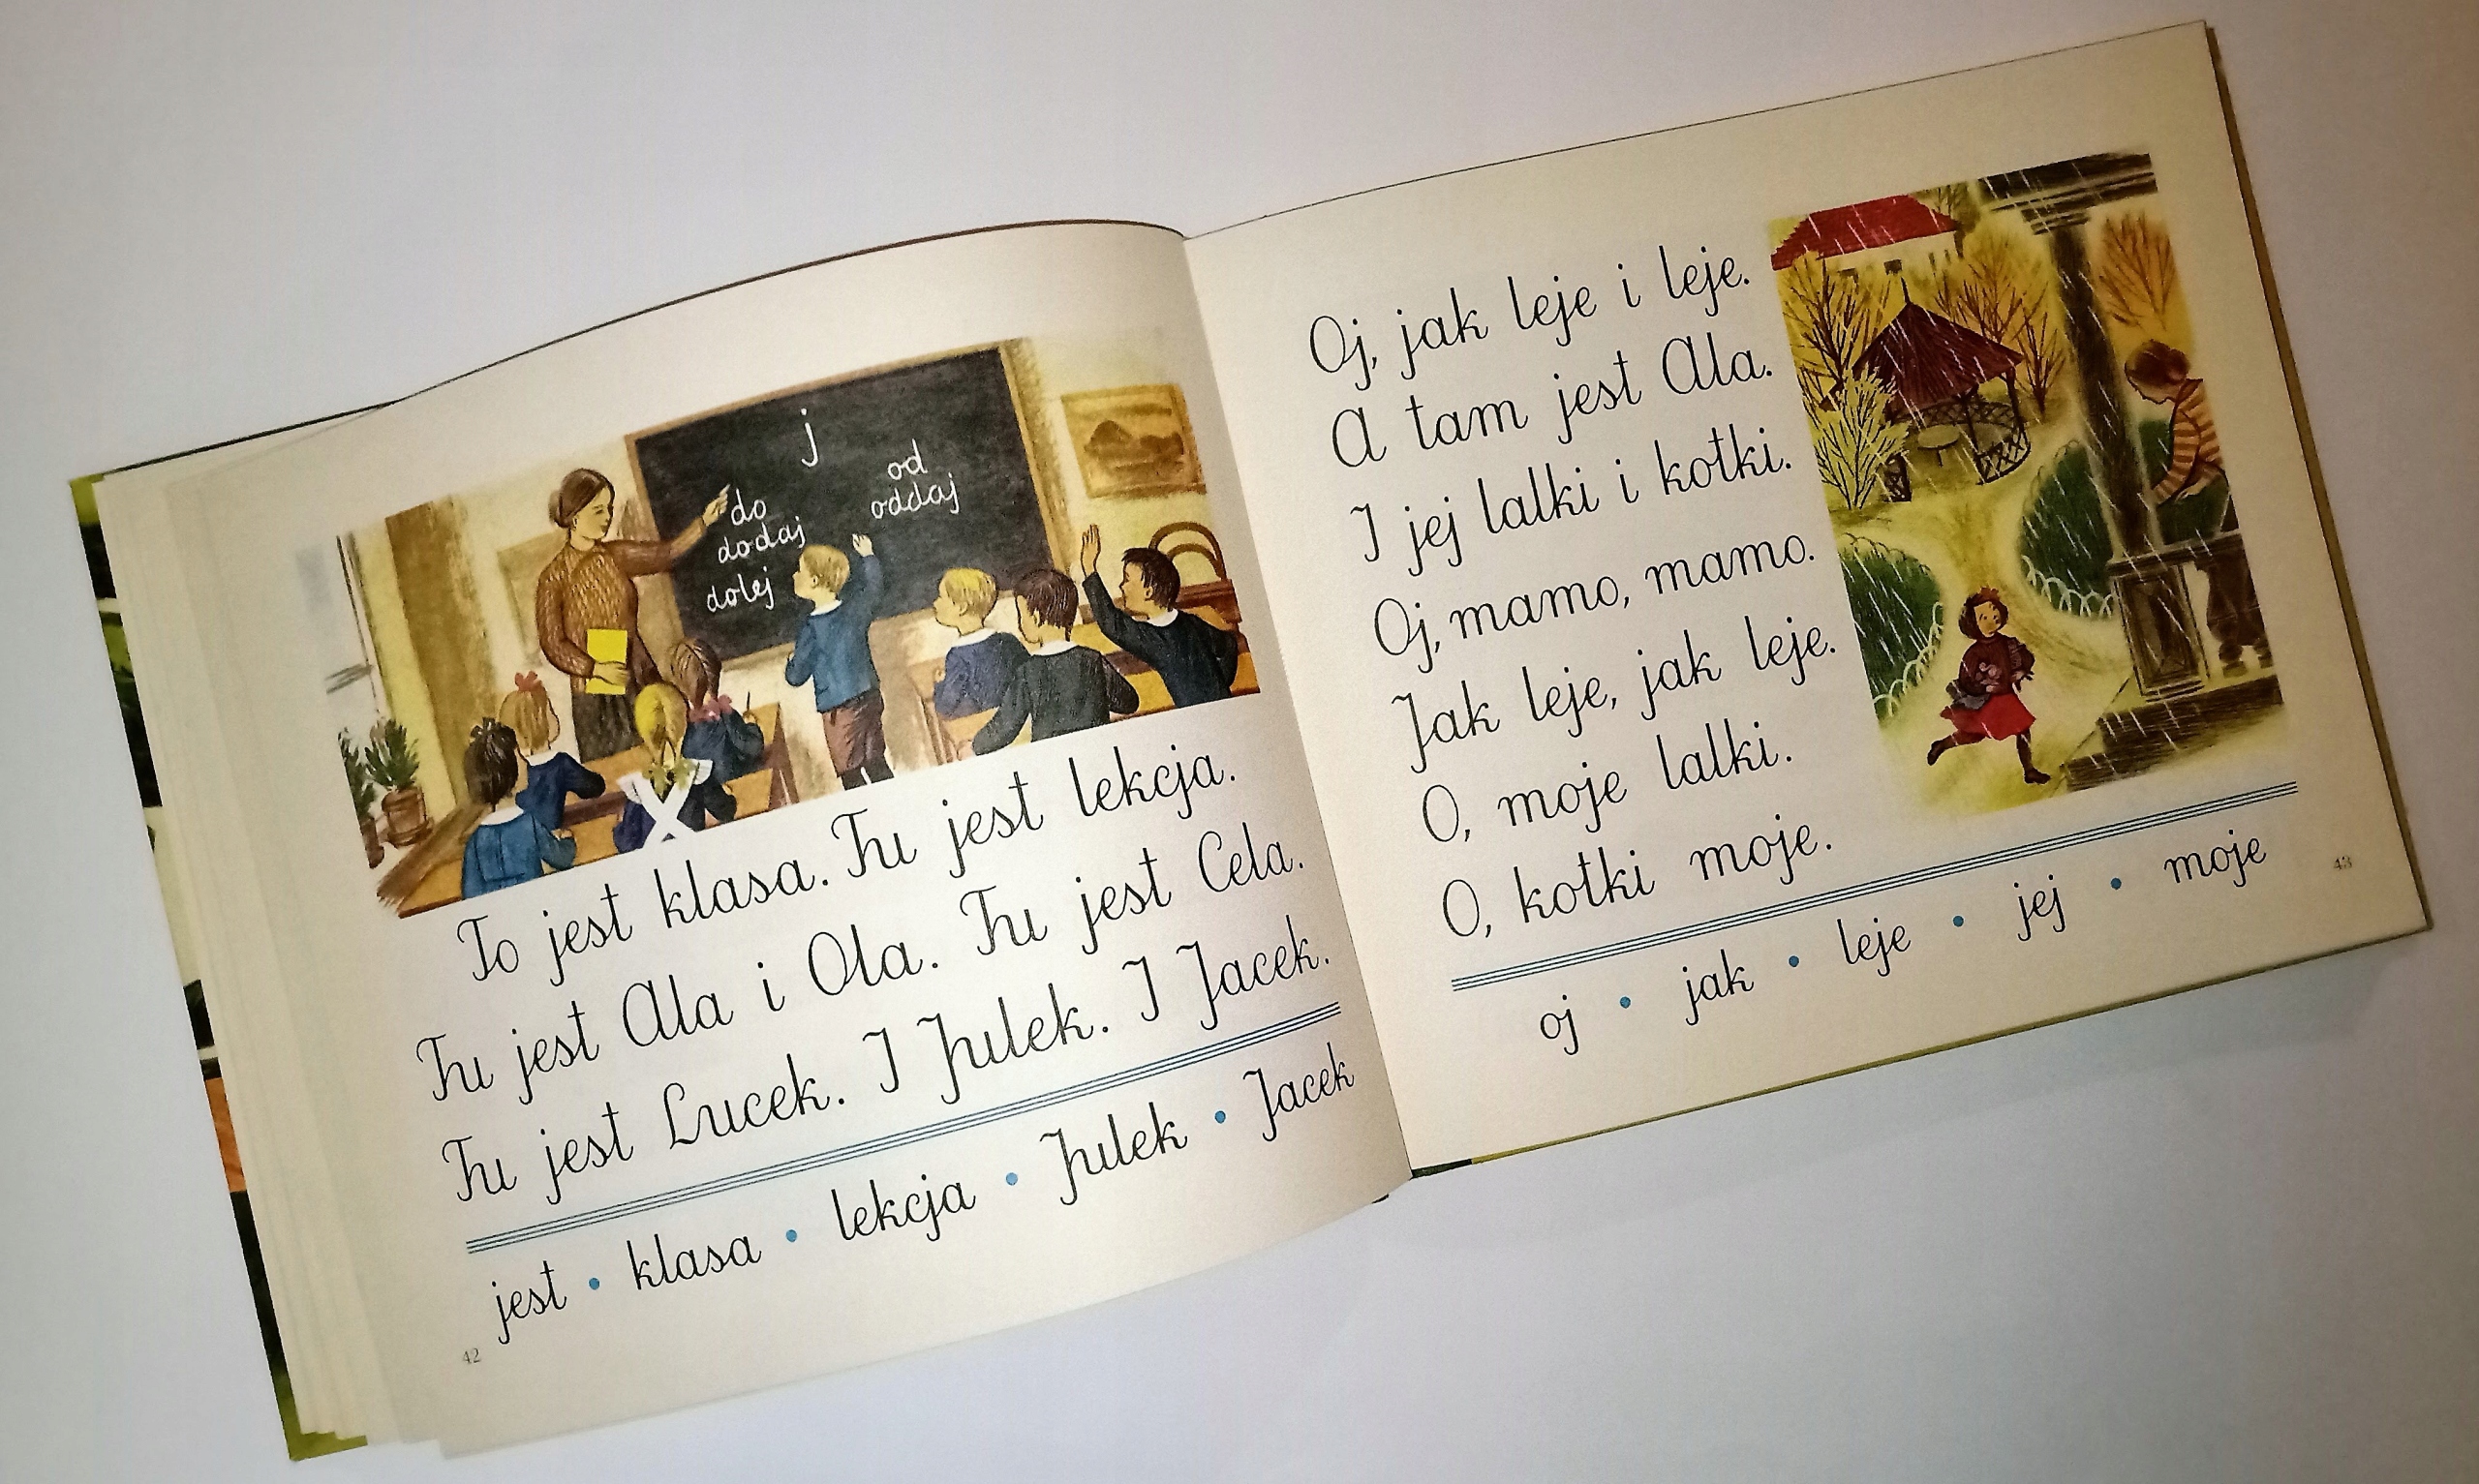 j
do
dodaj
dolej
od
oddaj
To jest klasa. Tu jest lekcja.
Tu jest Ala i Ola. Tu jest Cela.
Tu jest Lucek. I Julek. I Jacek.
jest • klasa • lekcja • Julek • Jacek
42
Oj, jak leje i leje.
A tam jest Ala.
I jej lalki i kotki.
Oj, mamo, mamo.
Jak leje, jak leje.
O, moje lalki.
O, kotki moje.
oj • jak • leje • jej • moje
43